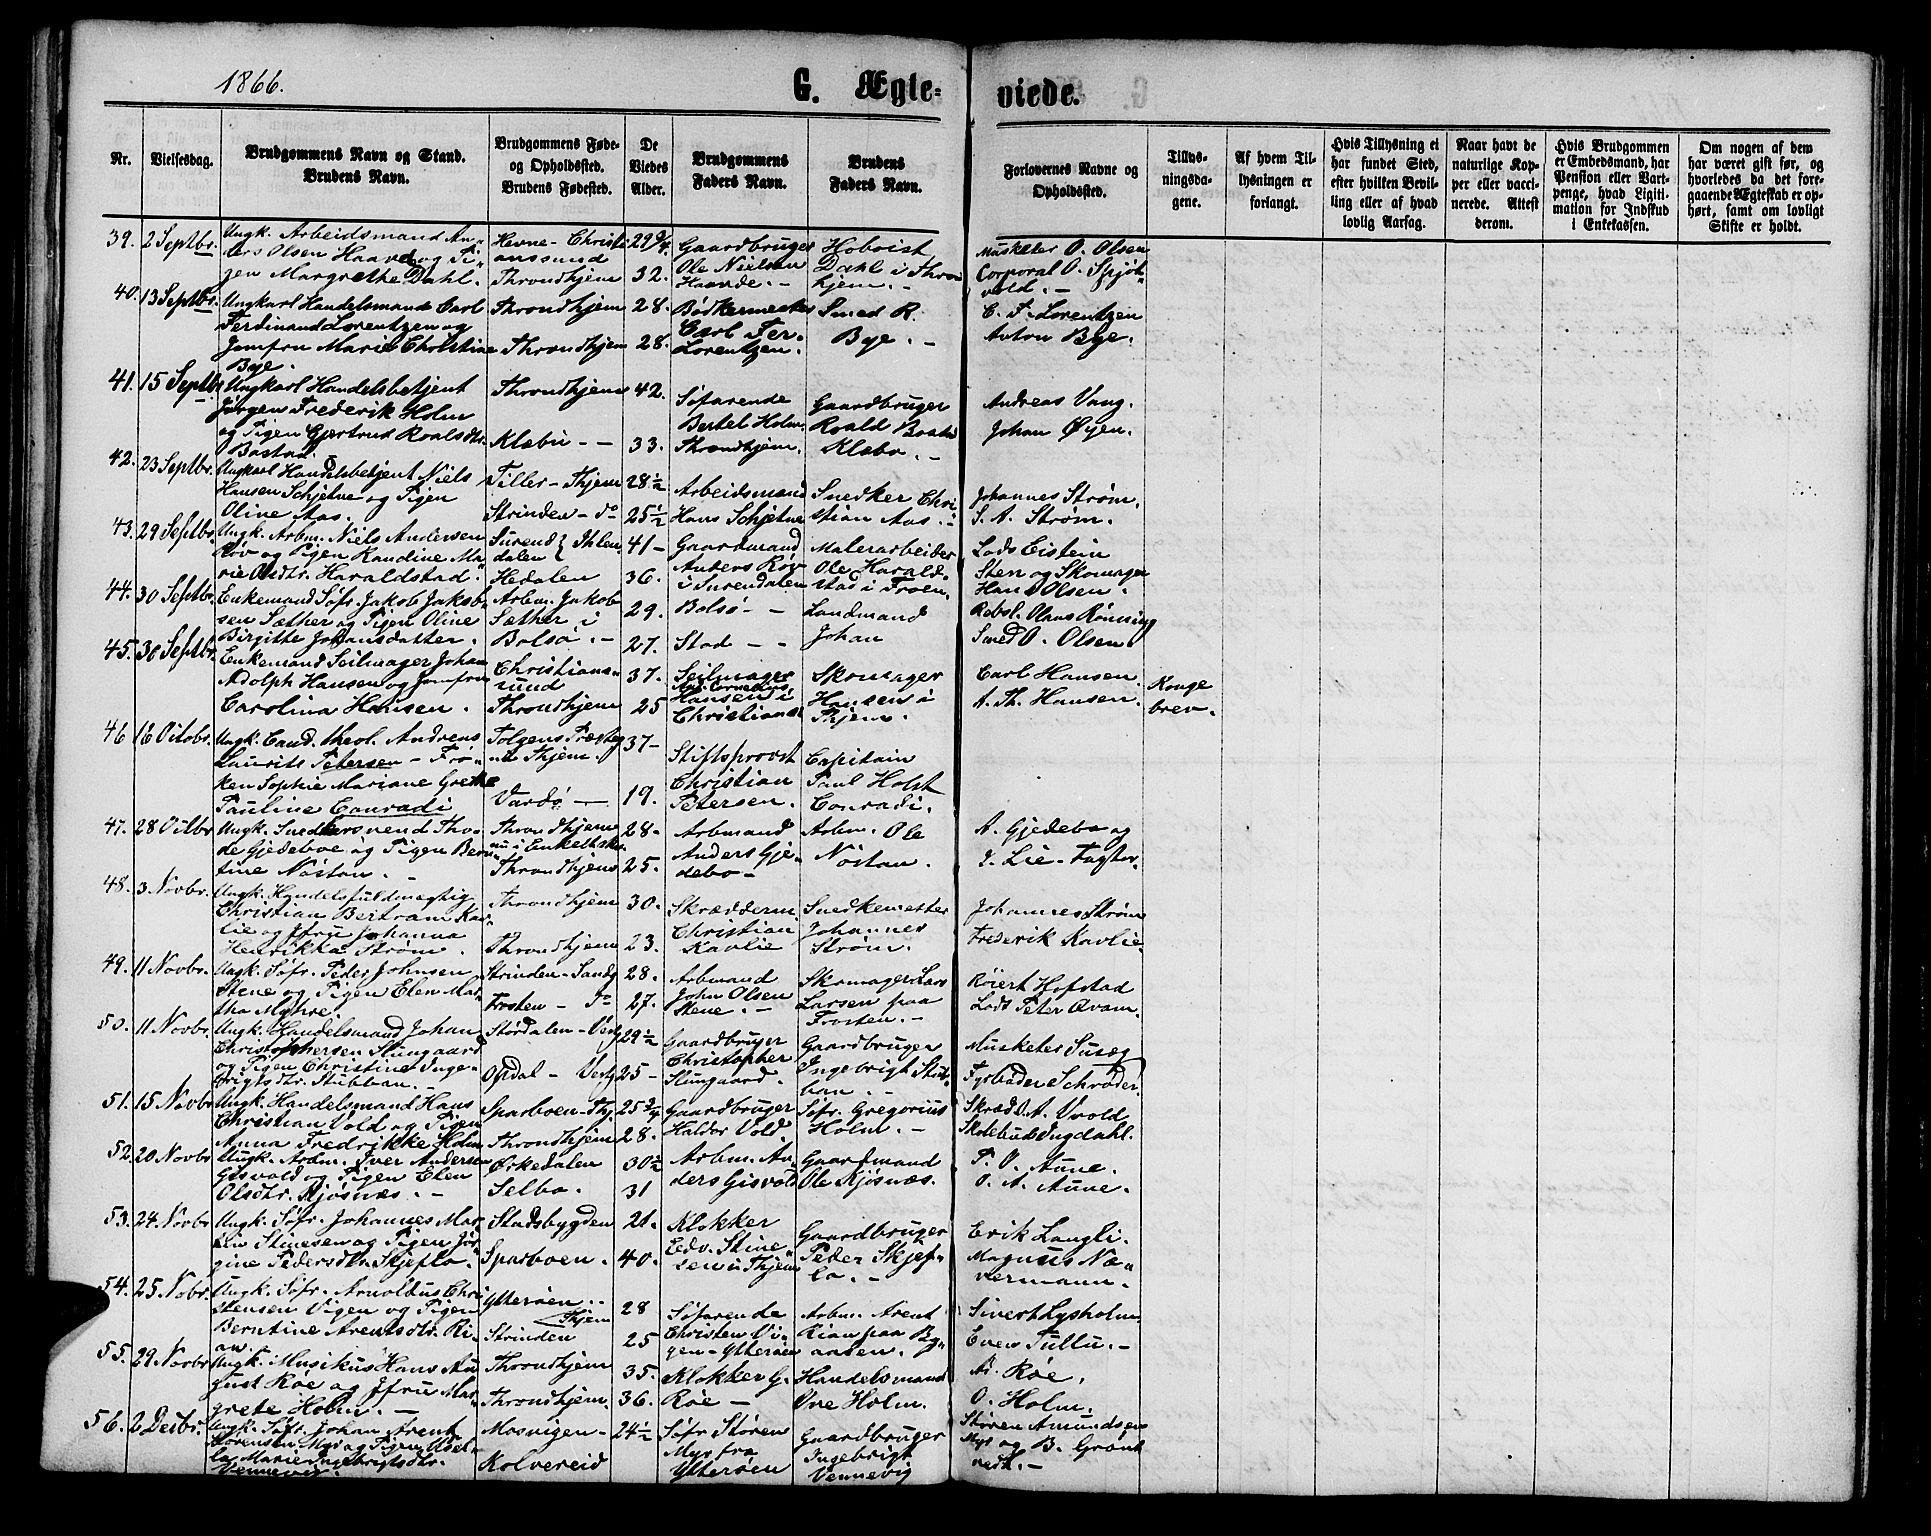 1866.
G. Ægte-
viede.
Nr.
Vielsesdag.
Brudgommens Navn og Stand.
Brudens Navn.
Brudgommens Føde-
og Opholdssted.
Brudens Fødested.
De
Viedes
Alder.
Brudgommens
Faders Navn.
Brudens
Faders Navn.
Forlovernes Navne og
Opholdssted.
Tillys-
ningsda-
gene.
Af hvem Til-
lysningen er
forlangt.
Hvis Tillysning ei
har fundet Sted,
efter hvilken Bevil-
ling eller af hvad
lovlig Aarsag.
Naar havt de
naturlige Kop-
per eller vacci-
nerede. Attest
derom.
Hvis Brudgommen
er Embedsmand, har
Pension eller Vart-
penge, hvad Ligiti-
mation for Indskud
i Enkekassen.
Om nogen af dem
har været gift før, og
hvorledes da det fore-
gaaende Ægteskab er op-
hørt, samt om lovligt
Skifte er holdt.
39. 2 Septbr. Ungk. Arbeidsmand An-
ders Olsen Haavde og Pi-
gen Margrethe Dahl.
Hevne - Christi-
anssund
Throndhjem
29 3/4
32.
Gaardbruger
Ole Nielsen
Haavde. -
Hoboist
Dahl i Thron
hjem. -
Musketer O. Olsen
Corporal O. Spjöt-
vold. -
40. 13 Septbr. Ungkarl Handelsmand Carl
Ferdinand Lorentzen og
Jomfru Marie Christine
Bye.
Throndhjem
Throndhjem
28.
28.
Bødkermester
Carl Fer.
Lorentzen.
Smed R.
Bye. -
C. F. Lorentzen
Anton Bye.
41. 15 Septbr. Ungkarl Handelsbetjent
Jørgen Frederik Holm
og Pigen Gjertrud Roalsdtr.
Bostad.
Throndhjem
Klæbu - -
42.
33.
Søfarende
Bertel Holm.
Throndhjem.
Gaardbruger
Roald Bostad
Klæbo. -
Andreas Vang.
Johan Øyen.
42. 23 Septbr. Ungkarl Handelsbetjent Niels
Hansen Schjetne og Pigen
Oline Aas.
Tiller - Thjem
Strinden - do
28 1/2
25 1/2
Arbeidsmand
Hans Schjetne
Snedker Chri-
stian Aas. -
Johannes Strøm.
S. A. Strøm.
43. 29 Septbr. Ungk. Arbm. Niels Andersen
Röv og Pigen Randine Ma-
rie Olsdtr. Haraldstad.
Surend
dalen } Ihlen
Hedalen
41 -
36.
Gaardmand
Anders Röv
i Surendalen
Malerarbeider
Ole Harald-
stad i Froen.
Lods Eistein
Sten og Skomager
Hans Olsen.
44. 30 Septbr. Enkemand Søfr. Jakob Jakob-
sen Sæther og Pigen Oline
Birgitte Johansdatter.
Arbm. Jakob
Sæther i
Bolsö. -
29.
27.
Bolsö - -
Stad - -
Landmand
Johan
Rebsl. Olaus Rönning
Smed O. Olsen.
45. 30 Septbr. Enkemand Seilmager Johan
Adolph Hansen og Jomfru
Carolina Hansen.
Christians-
sund
Throndhjem
37.
25
Seilmager
And. Cornelius
Hansen i
Christians
Skomager
Hansen i
Thjem.
Carl Hansen.
A. Th. Hansen.
Konge
brev.
46 16 Octobr. Ungk. Cand. theol. Andreas
Laurits Petersen - Frø-
ken Sophie Mariane Grethe
Pauline Conradi
Tolgens Præsteg
nu Thjem.
Vardö -
37 -
19.
Stiftsprovst
Christian
Petersen.
Capitain
Paul Holst
Conradi.
47. 28 Octbr Ungk. Snedkersvend Tho-
de Gjedeboe og Pigen Bern-
tine Nöstan. -
Throndhjem
nu i Enkeltsk.
Throndhjem
28 -
25.
Arbmand
Anders Gje-
debo -
Arbm. Ole
Nöstan.
A. Gjedebo og
J. Lie - Fagtor.
48. 3 Novbr. Ungk. Handelsfuldmegtig
Christian Bertram Kav-
lie og Jfru Johanna
Henrikka Strøm.
Throndhjem
Throndhjem
30.
23.
Skrædderm.
Christian
Kavlie
Snedkemester
Johannes
Strøm.
Johannes Strøm
Frederik Kavlie
49. 11 Novbr. Ungk. Söfr. Peder Johnsen
Stene og Pigen Elen Mar-
tha Myhre.
Strinden - Sandg
Frosten - do
28.
27.
Arbmand
John Olsen
Stene. -
Skomager Lars
Larsen paa
Frosten. -
Röiert Hofstad
Lods Peter Qvam.
50. 11 Novbr. Ungk. Handelsmand Johan
Christophersen Slungaard
og Pigen Christine Inge-
brigtsdtr. Stubban. -
Størdalen - Vestg
Opdal - Vestg
29 1/2
25 -
Gaardbruger
Christopher
Slungaard.
Gaardbruger
Ingebrigt Stub-
ban. -
Musketer Susæg
Fyrböder Schröder
51. 15 Novbr Ungk. Handelsmand Hans
Christian Vold og Pigen
Anna Fredrikke Holm
Sparboen - Thj.
Throndhjem
25 3/4
28.
Gaardbruger
Haldor Vold.
Søfr. Gregorius
Holm. -
Skræd. A. Vold
Skolebud Ingdahl.
52. 20 Novbr Ungk. Arbm. Iver Andersen
Gisvold og Pigen Elen
Olsdtr. Kjösnæs. -
Ørkedalen
Selbo.
30 1/2
31
Arbm. An-
ders Gisvold
Gaardmand
Ole Kjösnæs.
P. O. Aune.
O. A. Aune.
53. 24. Novbr Ungk. Söfr. Johannes Mar-
tin Stinesen og Pigen Jör-
gine Pedersdtr. Skjefla.
Stadsbygden
Sparboen.
21.
40.
Klokker
Edv. Stine-
sen i Thjem
Gaardbruger
Peder Skjef-
la. -
Erik Langli.
Magnus Næ-
vermann.
54. 25. Nobr. Ungk. Söfr. Arnoldus Chri-
stensen Vigen og Pigen
Berntine Arentsdtr. Ri-
an.
Ytterøen. -
Thjem
Strinden
28
25
Söfarende
Christen Vi-
gen - Ytterøen
Arbm. Arent
Rian paa By-
aasen.
Sivert Lysholm
Even Tullu. -
55. 29. Novbr Ungk. Musikus Hans Au-
gust Røe og Jfru Mar-
grete Holm. -
Throndhjem
Throndhjem
35.
36.
Klokker G.
Røe -
Handelsmand
Ove Holm.
A. Røe.
O. Holm.
56. 2 Decbr. Ungk. Söfr. Johan Arent
Sörensen Myr og Pigen
Marie Ingebrigtsdtr.
Vennevig.
Mosvigen -
Kolvereid
24 1/2
Söfr Stören
Myr fra
Ytterøen
Gaardbruger
Ingebrigt
Vennevig
Stören Amundsen
Myr og B. Grönt-
vedt. -